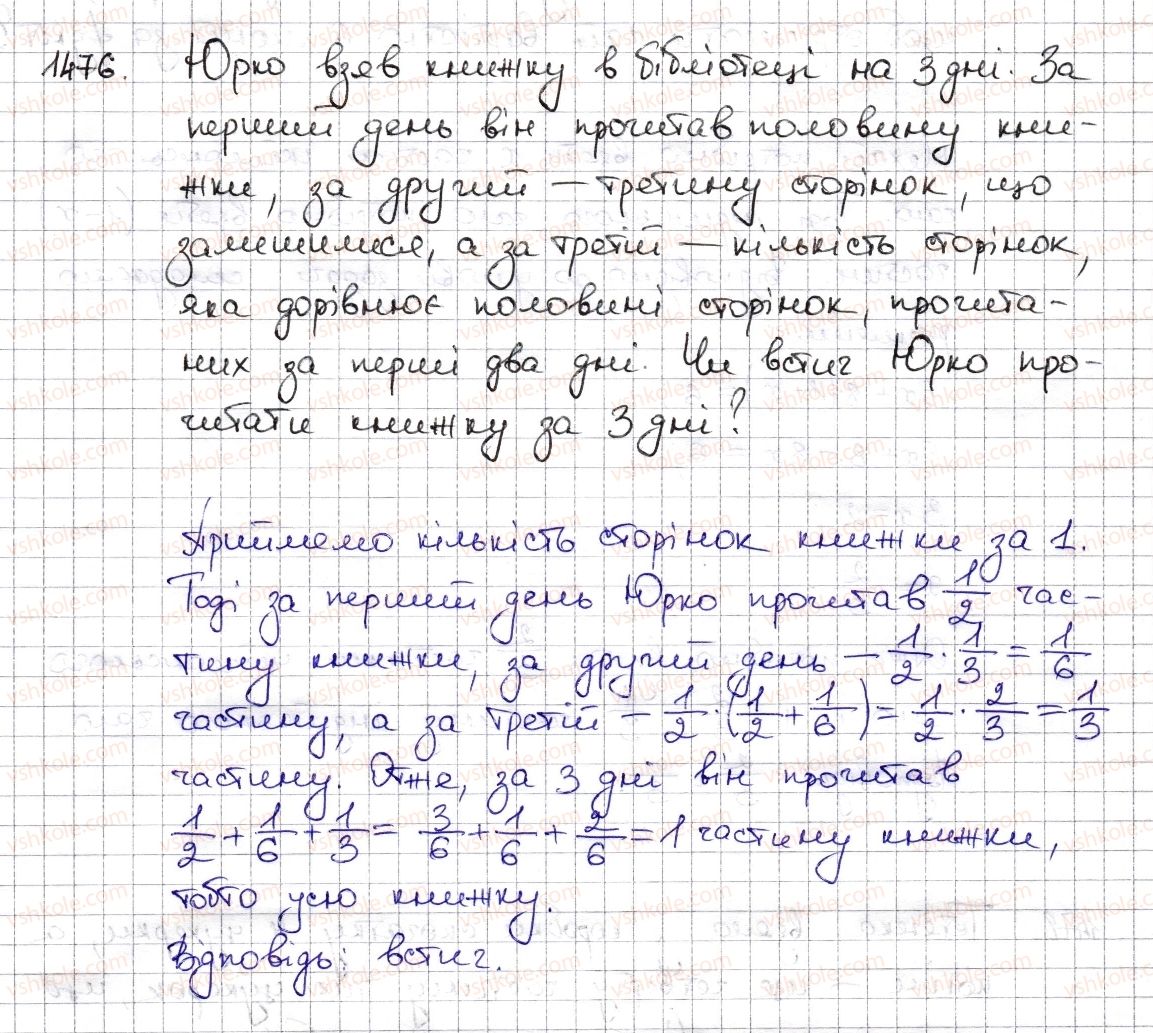 1476. Юрко взяв книжку в бібліотеці на 3 дні. За
перший день він прочитав половину кни-
жки, за другий — третину сторінок, що
залишилися, а за третій — кількість сторінок,
яка дорівнює половині сторінок, прочита-
них за перші два дні. Чи встиг Юрко про-
читати книжку за 3 дні?
Приймемо кількість сторінок книжки за 1.
Тоді за перший день Юрко прочитав 1/2 час-
тину книжки, за другий день — 1/2 · 1/3 = 1/6
частину, а за третій — 1/2 · (1/2 + 1/6) = 1/2 · 2/3 = 1/3
частину. Отже, за 3 дні він прочитав
1/2 + 1/6 + 1/3 = 3/6 + 1/6 + 2/6 = 1 частину книжки,
тобто усю книжку.
Відповідь: встиг.